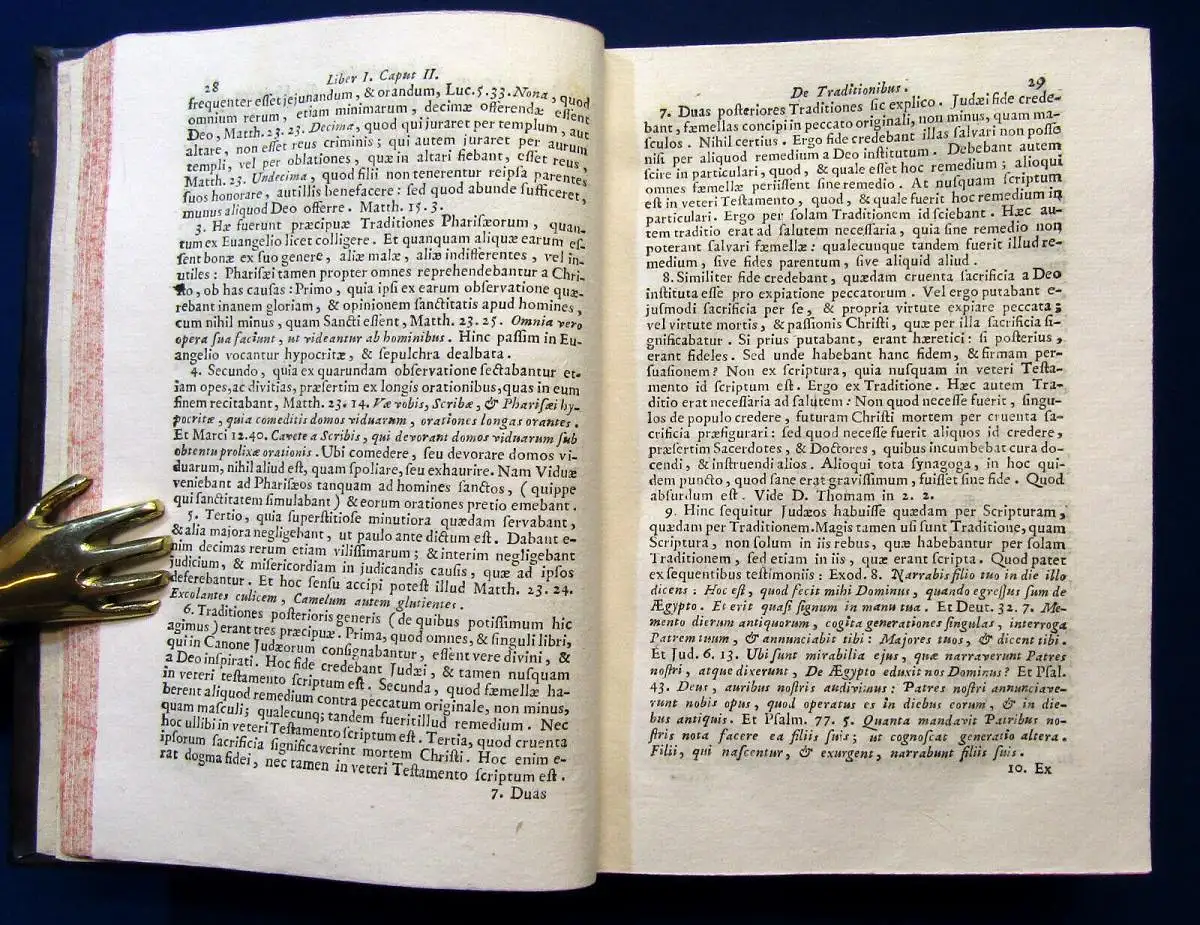 28
Liber I. Caput II.
frequenter eſſet jejunandum, & orandum, Luc. 5. 33. Nona, quod
omnium rerum, etiam minimarum, decimæ offerendæ eſſent
Deo, Matth. 23. 23. Decima, quod qui juraret per templum, aut
altare, non eſſet reus criminis; qui autem juraret per aurum
templi, vel per oblationes, quæ in altari fiebant, eſſet reus,
Matth. 23. Undecima, quod filii non tenerentur reipſa parentes
ſuos honorare, aut illis benefacere: ſed quod abunde ſufficeret,
munus aliquod Deo offerre. Matth. 15. 3.
3. Hæ fuerunt præcipuæ Traditiones Phariſæorum, quan-
tum ex Euangelio licet colligere. Et quanquam aliquæ earum eſ-
ſent bonæ ex ſuo genere, aliæ malæ, aliæ indifferentes, vel in-
utiles: Phariſæi tamen propter omnes reprehendebantur a Chri-
ſto, ob has cauſas: Primo, quia ipſi ex earum obſervatione quæ-
rebant inanem gloriam, & opinionem ſanctitatis apud homines,
cum nihil minus, quam Sancti eſſent, Matth. 23. 25. Omnia vero
opera ſua faciunt, ut videantur ab hominibus. Hinc paſſim in Eu-
angelio vocantur hypocritæ, & ſepulchra dealbata.
4. Secundo, quia ex quarundam obſervatione ſectabantur et-
iam opes, ac divitias, præſertim ex longis orationibus, quas in eum
finem recitabant, Matth. 23. 14. Væ vobis, Scribæ, & Phariſæi hy-
pocritæ, quia comeditis domos viduarum, orationes longas orantes.
Et Marci 12. 40. Cavete a Scribis, qui devorant domos viduarum ſub
obtentu prolixæ orationis. Ubi comedere, ſeu devorare domos vi-
duarum, nihil aliud eſt, quam ſpoliare, ſeu exhaurire. Nam Viduæ
veniebant ad Phariſæos tanquam ad homines ſanctos, (quippe
qui ſanctitatem ſimulabant) & eorum orationes pretio emebant.
5. Tertio, quia ſuperſtitioſe minutiora quædam ſervabant,
& alia majora negligebant, ut paulo ante dictum eſt. Dabant e-
nim decimas rerum etiam viliſſimarum; & interim negligebant
judicium, & miſericordiam in judicandis cauſis, quæ ad ipſos
deferebantur. Et hoc ſenſu accipi poteſt illud Matth. 23. 24.
Excolantes culicem, Camelum autem glutientes.
6. Traditiones poſterioris generis (de quibus potiſſimum hic
agimus) erant tres præcipuæ. Prima, quod omnes, & ſinguli libri,
qui in Canone Judæorum conſignabantur, eſſent vere divini, &
a Deo inſpirati. Hoc fide credebant Judæi, & tamen nuſquam
in veteri teſtamento ſcriptum eſt. Secunda, quod fæmellæ ha-
berent aliquod remedium contra peccatum originale, non minus,
quam maſculi; qualecunq; tandem fuerit illud remedium. Nec
hoc ullibi in veteri Teſtamento ſcriptum eſt. Tertia, quod cruenta
ipſorum ſacrificia ſignificaverint mortem Chriſti. Hoc enim e-
rat dogma fidei, nec tamen in veteri Teſtamento ſcriptum eſt.
7. Duas
De Traditionibus.
29
7. Duas poſteriores Traditiones ſic explico. Judæi fide crede-
bant, fæmellas concipi in peccato originali, non minus, quam ma-
ſculos. Nihil certius. Ergo fide credebant illas ſalvari non poſſe
niſi per aliquod remedium a Deo inſtitutum. Debebant autem
ſcire in particulari, quod, & quale eſſet hoc remedium; alioqui
omnes fæmellæ periiſſent ſine remedio. At nuſquam ſcriptum
eſt in veteri Teſtamento, quod, & quale fuerit hoc remedium in
particulari. Ergo per ſolam Traditionem id ſciebant. Hæc au-
tem traditio erat ad ſalutem neceſſaria, quia ſine remedio non
poterant ſalvari fæmellæ: qualecunque tandem fuerit illud re-
medium, ſive fides parentum, ſive aliquid aliud.
8. Similiter fide credebant, quædam cruenta ſacrificia a Deo
inſtituta eſſe pro expiatione peccatorum. Vel ergo putabant e-
juſmodi ſacrificia per ſe, & propria virtute expiare peccata;
vel virtute mortis, & paſſionis Chriſti, quæ per illa ſacrificia ſi-
gnificabatur. Si prius putabant, erant hæretici: ſi poſterius,
erant fideles. Sed unde habebant hanc fidem, & firmam per-
ſuaſionem? Non ex ſcriptura, quia nuſquam in veteri Teſta-
mento id ſcriptum eſt. Ergo ex Traditione. Hæc autem Tra-
ditio erat neceſſaria ad ſalutem: Non quod neceſſe fuerit, ſingu-
los de populo credere, futuram Chriſti mortem per cruenta ſa-
crificia præfigurari: ſed quod neceſſe fuerit aliquos id credere,
præſertim Sacerdotes, & Doctores, quibus incumbebat cura do-
cendi, & inſtruendi alios. Alioqui tota ſynagoga, in hoc qui-
dem puncto, quod ſane erat graviſſimum, fuiſſet ſine fide. Quod
abſurdum eſt. Vide D. Thomam in 2. 2.
9. Hinc ſequitur Judæos habuiſſe quædam per Scripturam,
quædam per Traditionem. Magis tamen uſi ſunt Traditione, quam
Scriptura, non ſolum in iis rebus, quæ habebantur per ſolam
Traditionem, ſed etiam in iis, quæ erant ſcripta. Quod patet
ex ſequentibus teſtimoniis: Exod. 8. Narrabis filio tuo in die illo
dicens: Hoc eſt, quod fecit mihi Dominus, quando egreſſus ſum de
Ægypto. Et erit quaſi ſignum in manu tua. Et Deut. 32. 7. Me-
mento dierum antiquorum, cogita generationes ſingulas, interroga
Patrem tuum, & annunciabit tibi: Majores tuos, & dicent tibi.
Et Jud. 6. 13. Ubi ſunt mirabilia ejus, quæ narraverunt Patres
noſtri, atque dixerunt, De Ægypto eduxit nos Dominus? Et Pſal.
43. Deus, auribus noſtris audivimus: Patres noſtri annunciave-
runt nobis opus, quod operatus es in diebus eorum, & in die-
bus antiquis. Et Pſalm. 77. 5. Quanta mandavit Patribus no-
ſtris nota facere ea filiis ſuis; ut cognoſcat generatio altera.
Filii, qui naſcentur, & exurgent, narrabunt filiis ſuis.
10. Ex